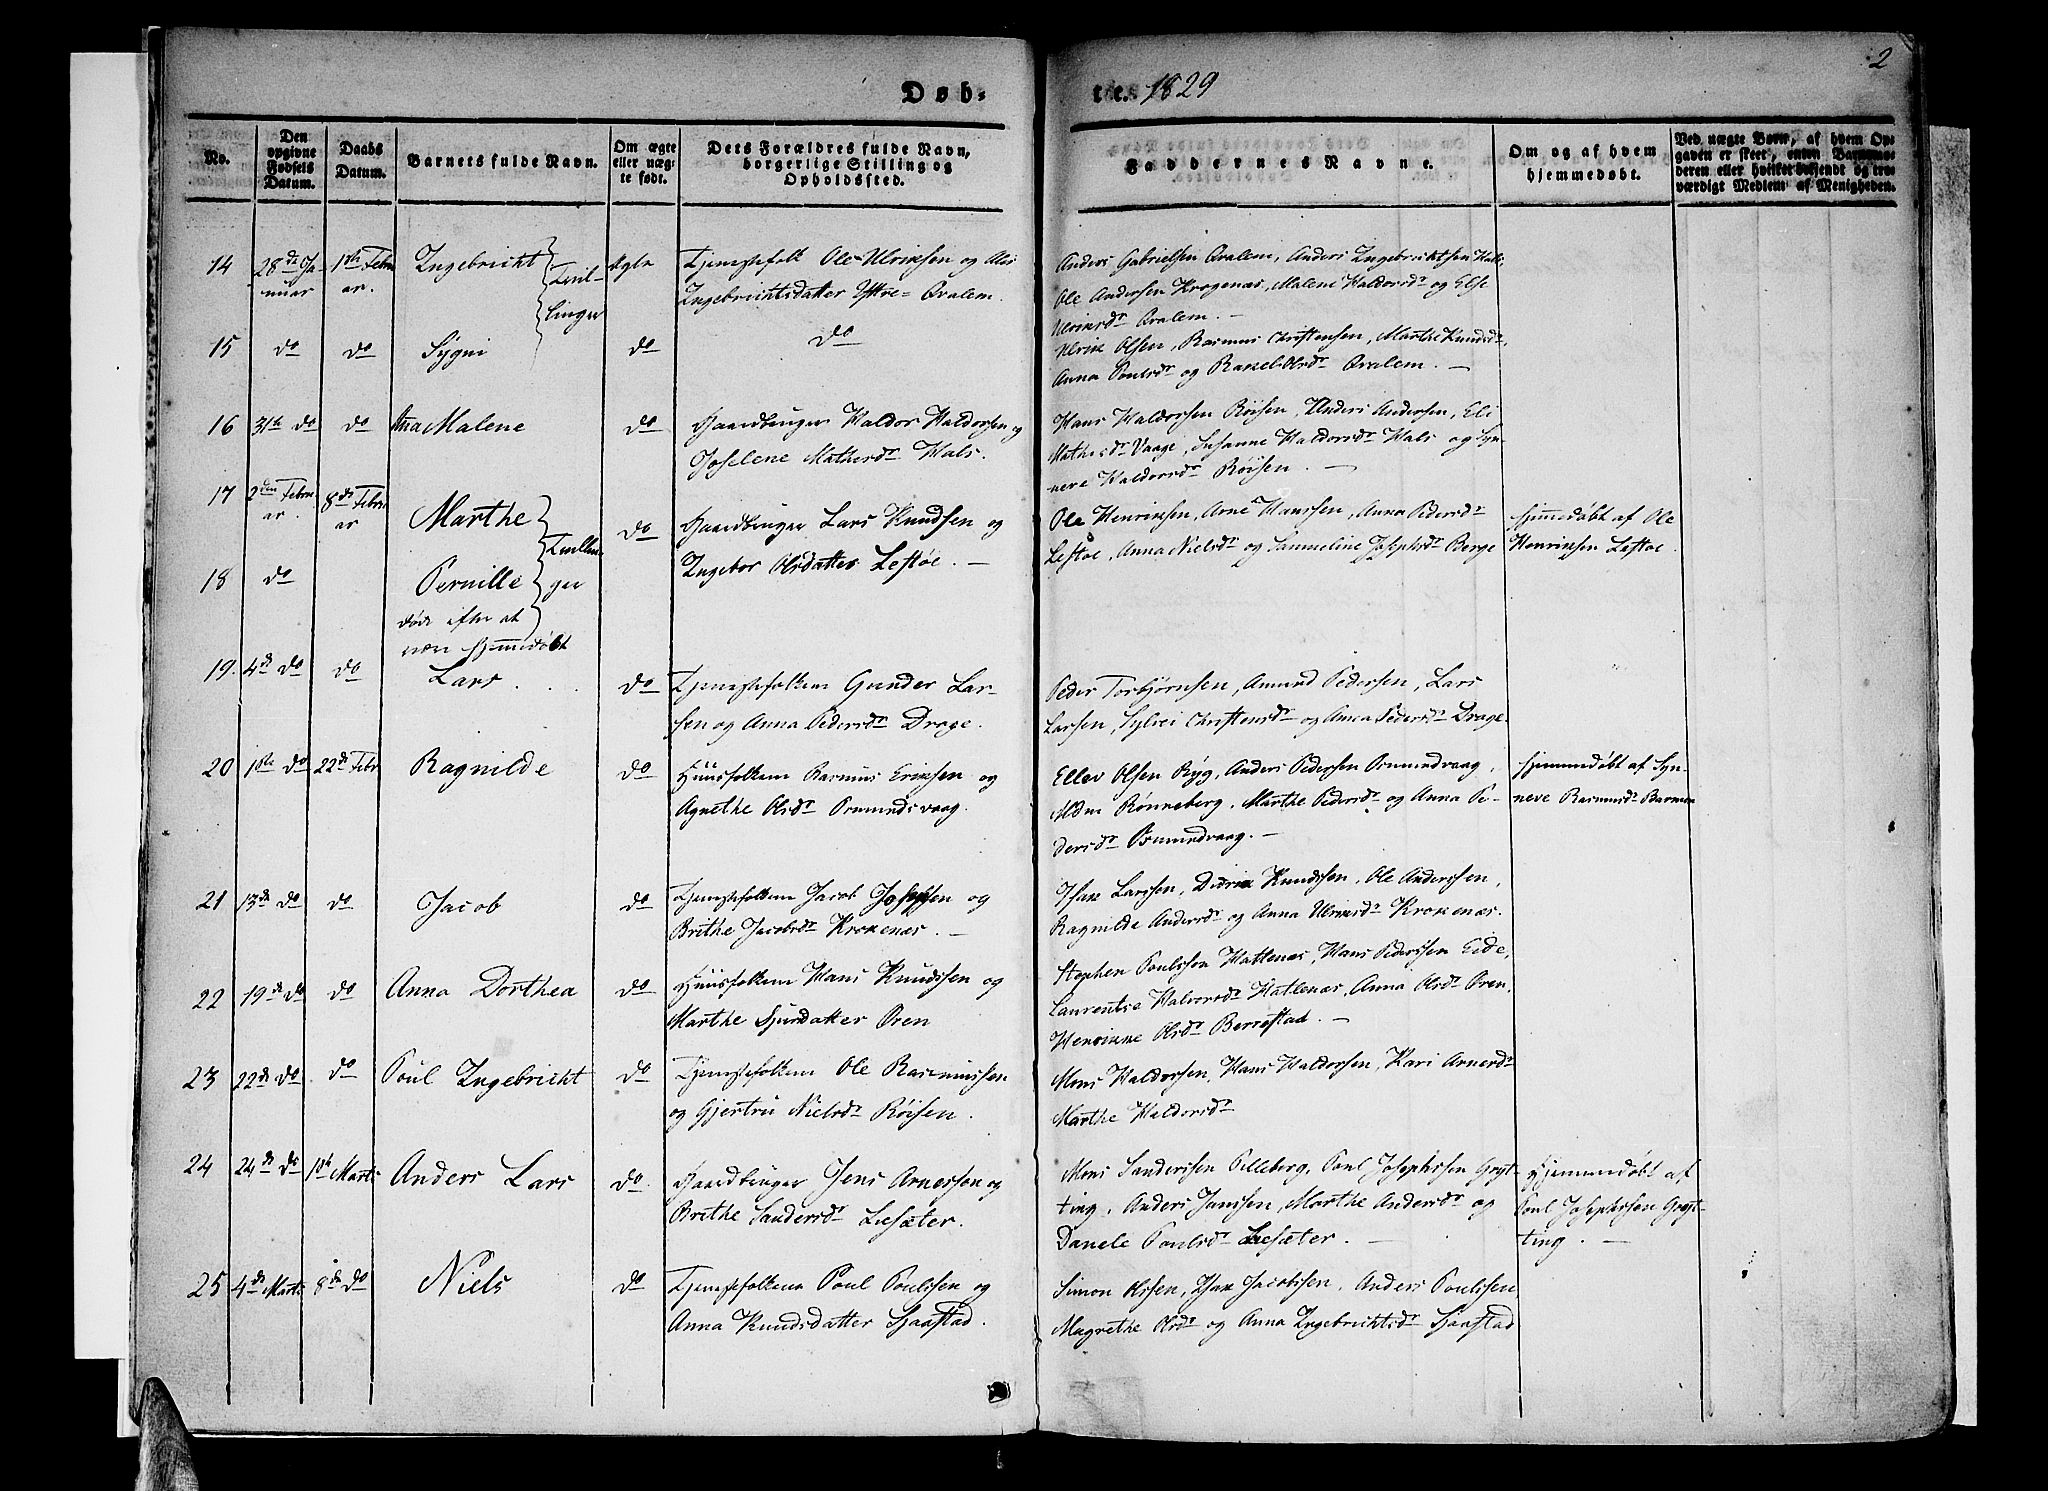 2
Døb-
te. 1829
No.
Den opgivne Fødsels Datum.
Daabs Datum.
Barnets fulde Navn.
Om ægte eller uægte født.
Dets Forældres fulde Navn, borgerlige Stilling og Opholdssted.
Faddernes Navne.
Om og af hvem hjemmedøbt.
Ved uægte Børn, af hvem Opgaven er skeet, enten Barnemoderen eller hvilket bekjendt og troværdigt Medlem af Menigheden.
14 28de Ja- 1ste Febru Ingebricht Ægte Tjenestefolk Ole Ulriksen og
nuar ar. Tvil- Ingebrichtsdatter Yttre= Qvalem.
linger
Anders Gabrielsen Qvalem, Anders Ingebrichtsen
Ole Andersen Krogenæs, Malene Haldorsdr og Else
Ulriksdr Qvalem. —
15 do do Sygni do do
Ulrik Olsen, Rasmus Christensen, Marthe Knudsdr,
Anna Poulsdr og Rakel Olsdr Qvalem. —
16 31te do do Malene do Gaardbruger Haldor Haldorsen og
Joselene Mathisdr Hals.
Hans Haldorsen Røisen, Anders Andersen, Eli
Mathisdr Vaage, Susanne Haldorsdr Hals og Syn-
neve Haldorsdr Røisen. —
17 2den Febru 8de Febru Marthe do Gaardbruger Lars Knudsen og
ar. ar Ingebor Olsdatter Lestøe. —
Ole Henriksen, Arne Hanssen, Anna Pedersdr
Lestøe, Anna Nielsdr og Sammeline Josephsdr Berge
hjemmedøbt af Ole
Henriksen Lestøe.
18 do Pernille
døde efter at
være hjemmedøbt
19. 4de do do Lars do Tjenestefolkene Gunder Lar-
sen og Anna Pedersdr Drage.
Peder Torbjørnsen, Amund Pedersen, Lars
Larsen, Sylvei Christensdr og Anna Pedersdr Drage.
20 1ste do 22de Febr Ragnilde do Huusfolkene Rasmus Eriksen og
Agnethe Olsdr Osmundsvaag.
Ellev Olsen Ryg, Anders Pedersen Osmundvaag,
Rønneberg, Marthe Pedersdr og Anna Pe-
dersdr Osmundvaag. —
hjemmedøbt af Syn-
neve Rasmusdr Barmen
21 13de do do Jacob do Tjenestefolkene Jacob Josephsen og
Brithe Jacobsdr Krokenæs. —
Isak Larssen, Didrik Knudssen, Ole Anderssen,
Ragnilde Andersdr og Anna Ulriksdr Krokenæs.
22 19de do do Anna Dorthea do Huusfolkene Hans Knudssen og
Marthe Sjurdatter Oren
Stephen Poulsson Hatlenæs, Hans Pederssen Eide,
Laurentse Halvorsdr Hatlenæs, Anna Olsdr Oren,
Henrikke Olsdr Berrestad. —
23 22de do do Poul Ingebricht do Tjenestefolkene Ole Rasmussen
og Gjertru Nielsdr Røisen.
Mons Haldorsen, Hans Haldorsen, Kari Arnesdr
Marthe Haldorsdr
24 24de do 1ste Marts Anders Lars do. Gaardbruger Jens Arnesson og
Brithe Sandersdr Liesæter.
Mons Sanderssen Pilleberg, Poul Josephssen Gryt-
ting, Anders Janssen, Marthe Andersdr og
Danele Poulsdr Liesæter. —
Hjemmedøbt af
Poul Josephssen Gryt-
ting. —
25 4de Marts 8de do Niels do Tjenestefolkene Poul Poulssen og
Anna Knudsdatter Sjaastad.
Simon Olssen, Isak Jacobssen, Anders Poulssen
Magrethe Olsdr og Anna Ingebrichtsdr Sjaastad